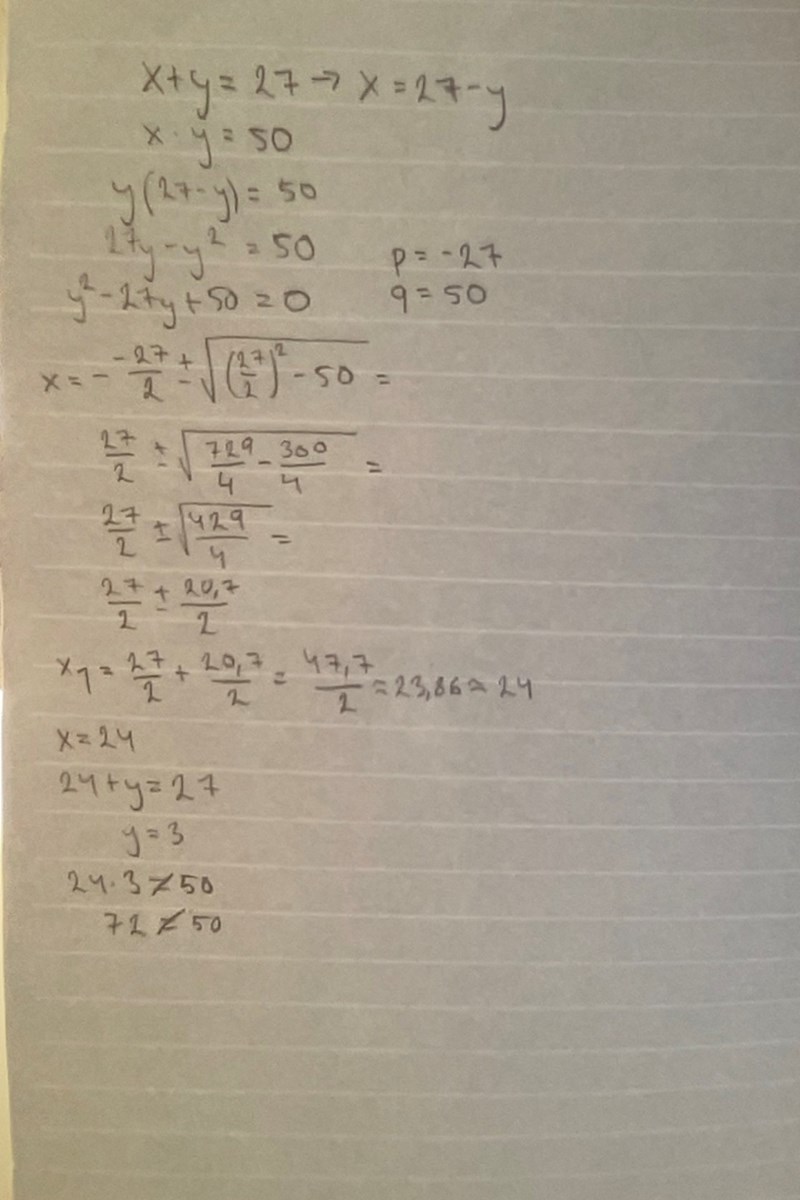 x+y = 27 → x = 27-y
x · y = 50
y(27-y) = 50
27y - y² = 50 p = -27
y² - 27y + 50 = 0 q = 50
x = - -27/2 ± √((27/2)² - 50) =
27/2 ± √(729/4 - 300/4) =
27/2 ± √(429/4) =
27/2 ± 20,7/2
x1 = 27/2 + 20,7/2 = 47,7/2 = 23,86 ≈ 24
x = 24
24 + y = 27
y = 3
24 · 3 ≠ 50
72 ≠ 50